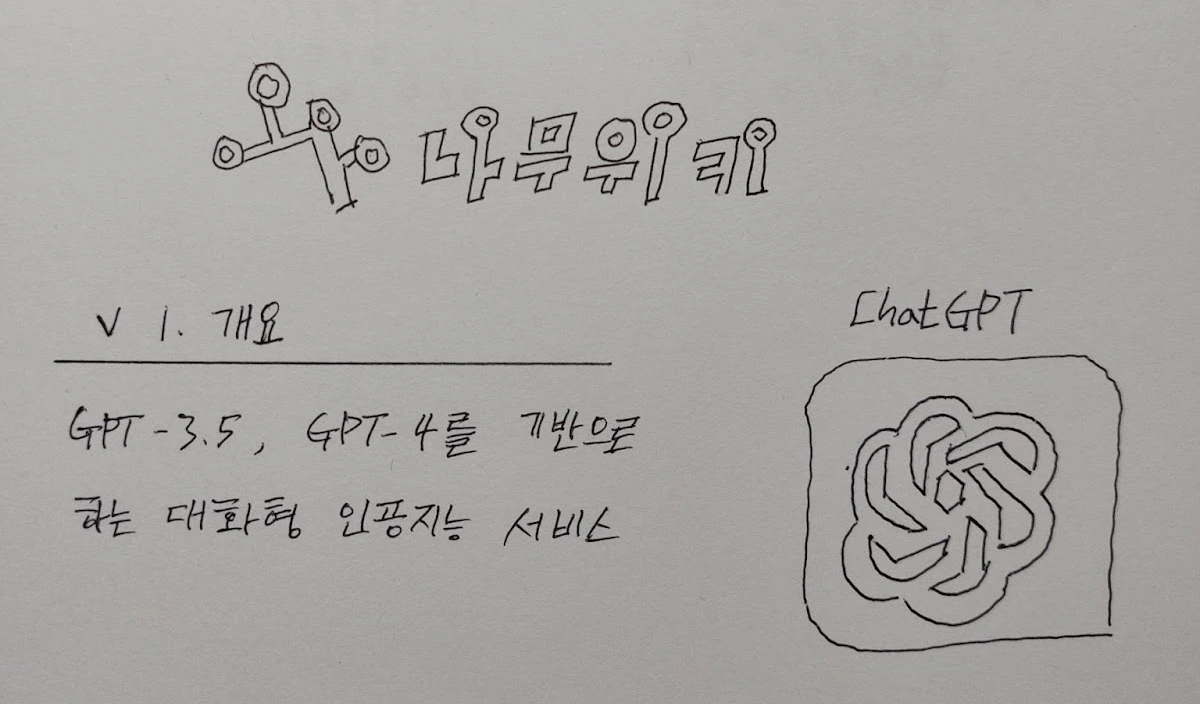 나무위키
V 1. 개요
GPT-3.5, GPT-4를 기반으로
하는 대화형 인공지능 서비스
ChatGPT